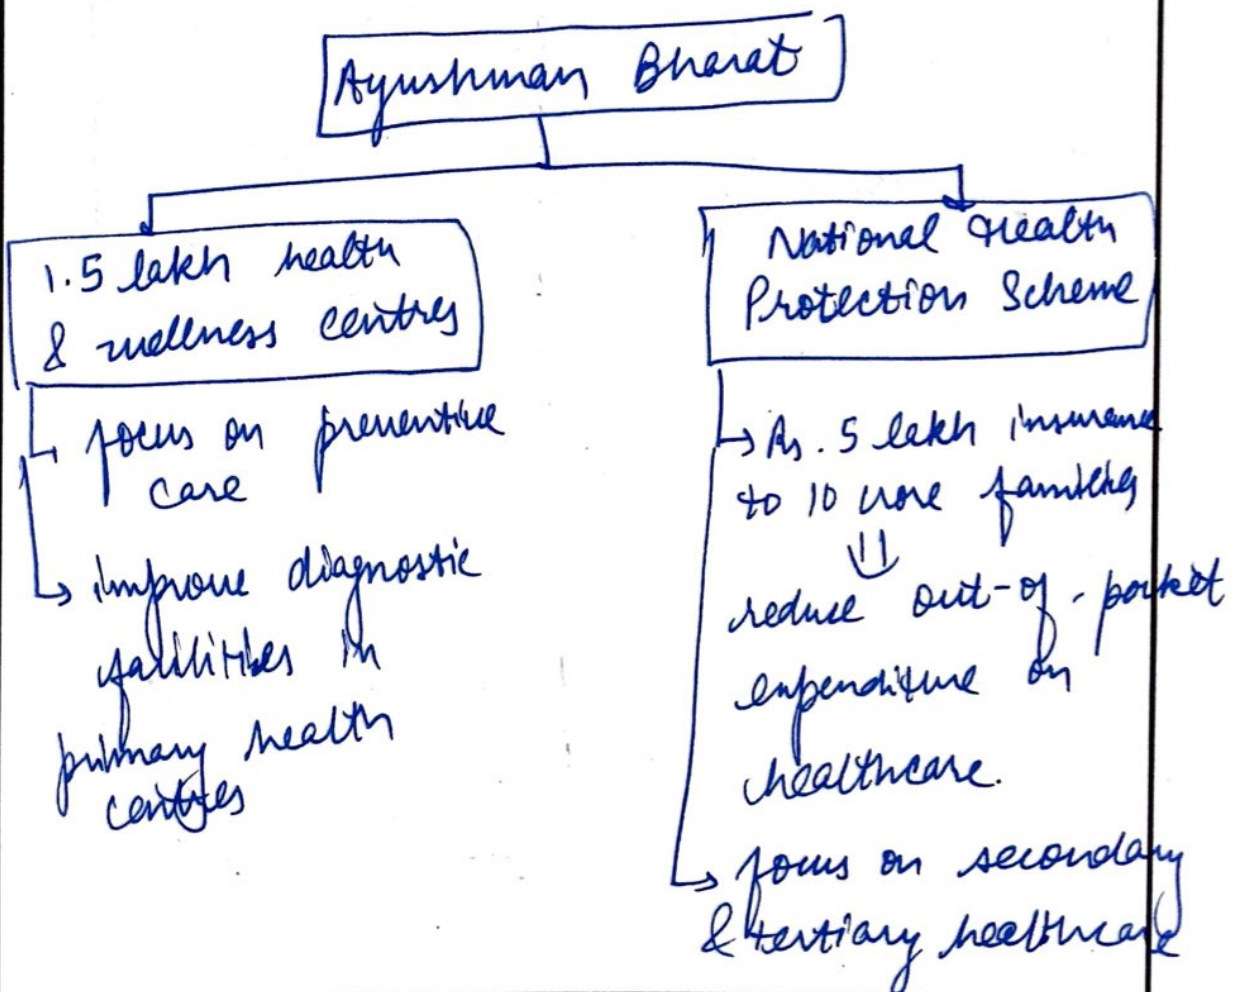 Ayushman Bharat
1.5 lakh health
& wellness centres
focus on preventive
care
improve diagnostic
facilities in
primary health
centres
National Health
Protection Scheme
Rs. 5 lakh insurance
to 10 crore families
reduce out-of-pocket
expenditure on
healthcare.
focus on secondary
& tertiary healthcare